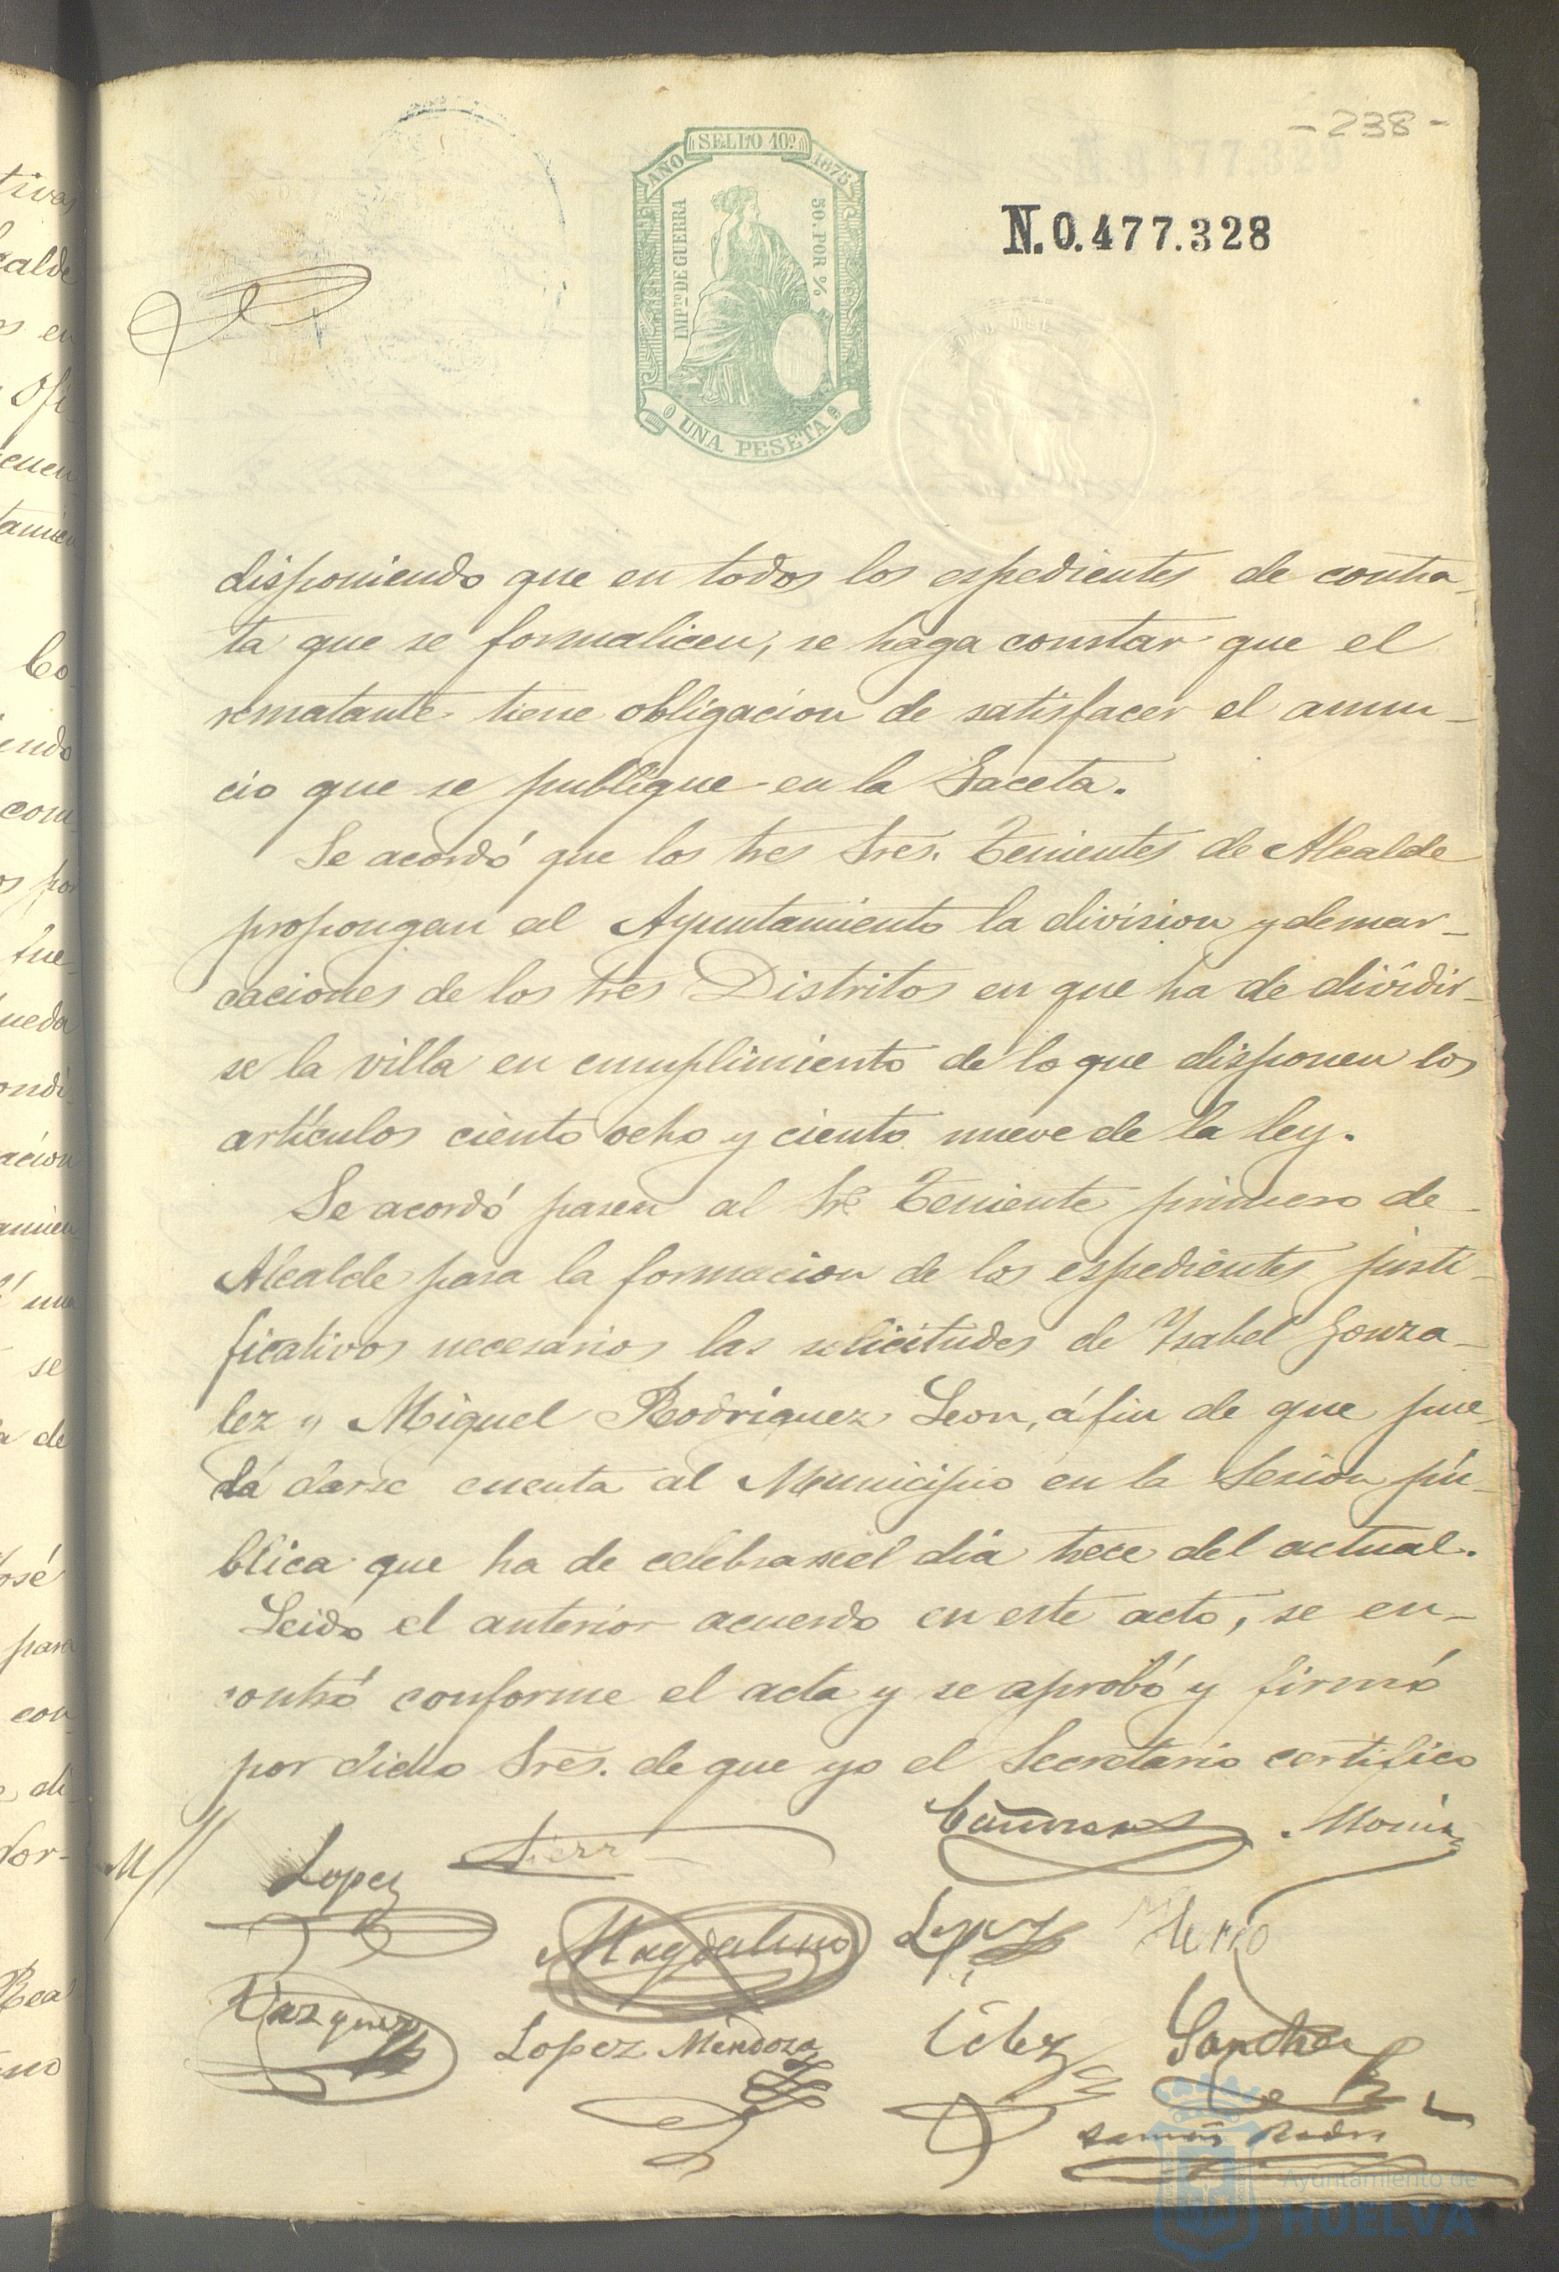 -238-
SELLO 10º
AÑO 1875
IMPTO DE GUERRA
50.POR %
UNA PESETA
N.0.477.328
disponiendo que en todos los espedientes de contra-
ta que se formalicen, se haga constar que el
rematante tiene obligacion de satisfacer el anun-
cio que se publique en la Gaceta.
Se acordó que los tres Sres. Tenientes de Alcalde
propongan al Ayuntamiento la division y demar-
caciones de los tres Distritos en que ha de dividir-
se la villa en cumplimiento de lo que disponen los
artículos ciento ocho y ciento nueve de la ley.
Se acordó pasen al Sr. Teniente primero de
Alcalde para la formacion de los espedientes justi-
ficativos necesarios las solicitudes de Ysabel Gonza-
lez y Miguel Rodriguez Leon, á fin de que pue-
da darse cuenta al Municipio en la Sesion pú-
blica que ha de celebrarse el dia trece del actual.
Leido el anterior acuerdo en este acto, se en-
contró conforme el acta y se aprobó y firmó
por dicho Sres. de que yo el Secretario certifico
Lopez
Magdaleno Lopez
Vazquez Lopez Mendoza Sanchez
Ayuntamiento de
HUELVA